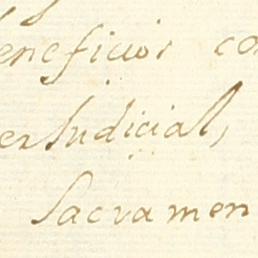 eneficios co
erjudicial,
Sacramen